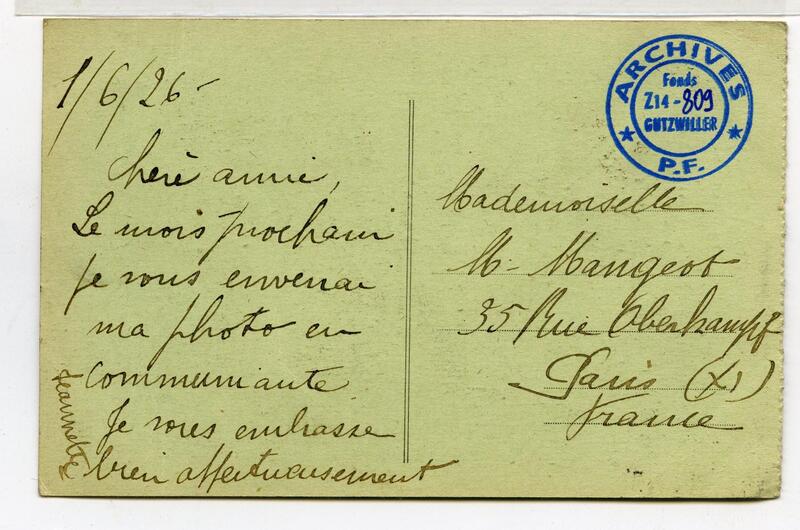 1/6/26-
Chère amie,
Le mois prochain
je vous enverrai
ma photo en
communiante
Je vous embrasse
bien affectueusement
Jeannette
ARCHIVES
Fonds
Z14-809
GUTZWILLER
P.F.
Mademoiselle
M. Mangeot
35 Rue Oberkampf
Paris (XI)
France